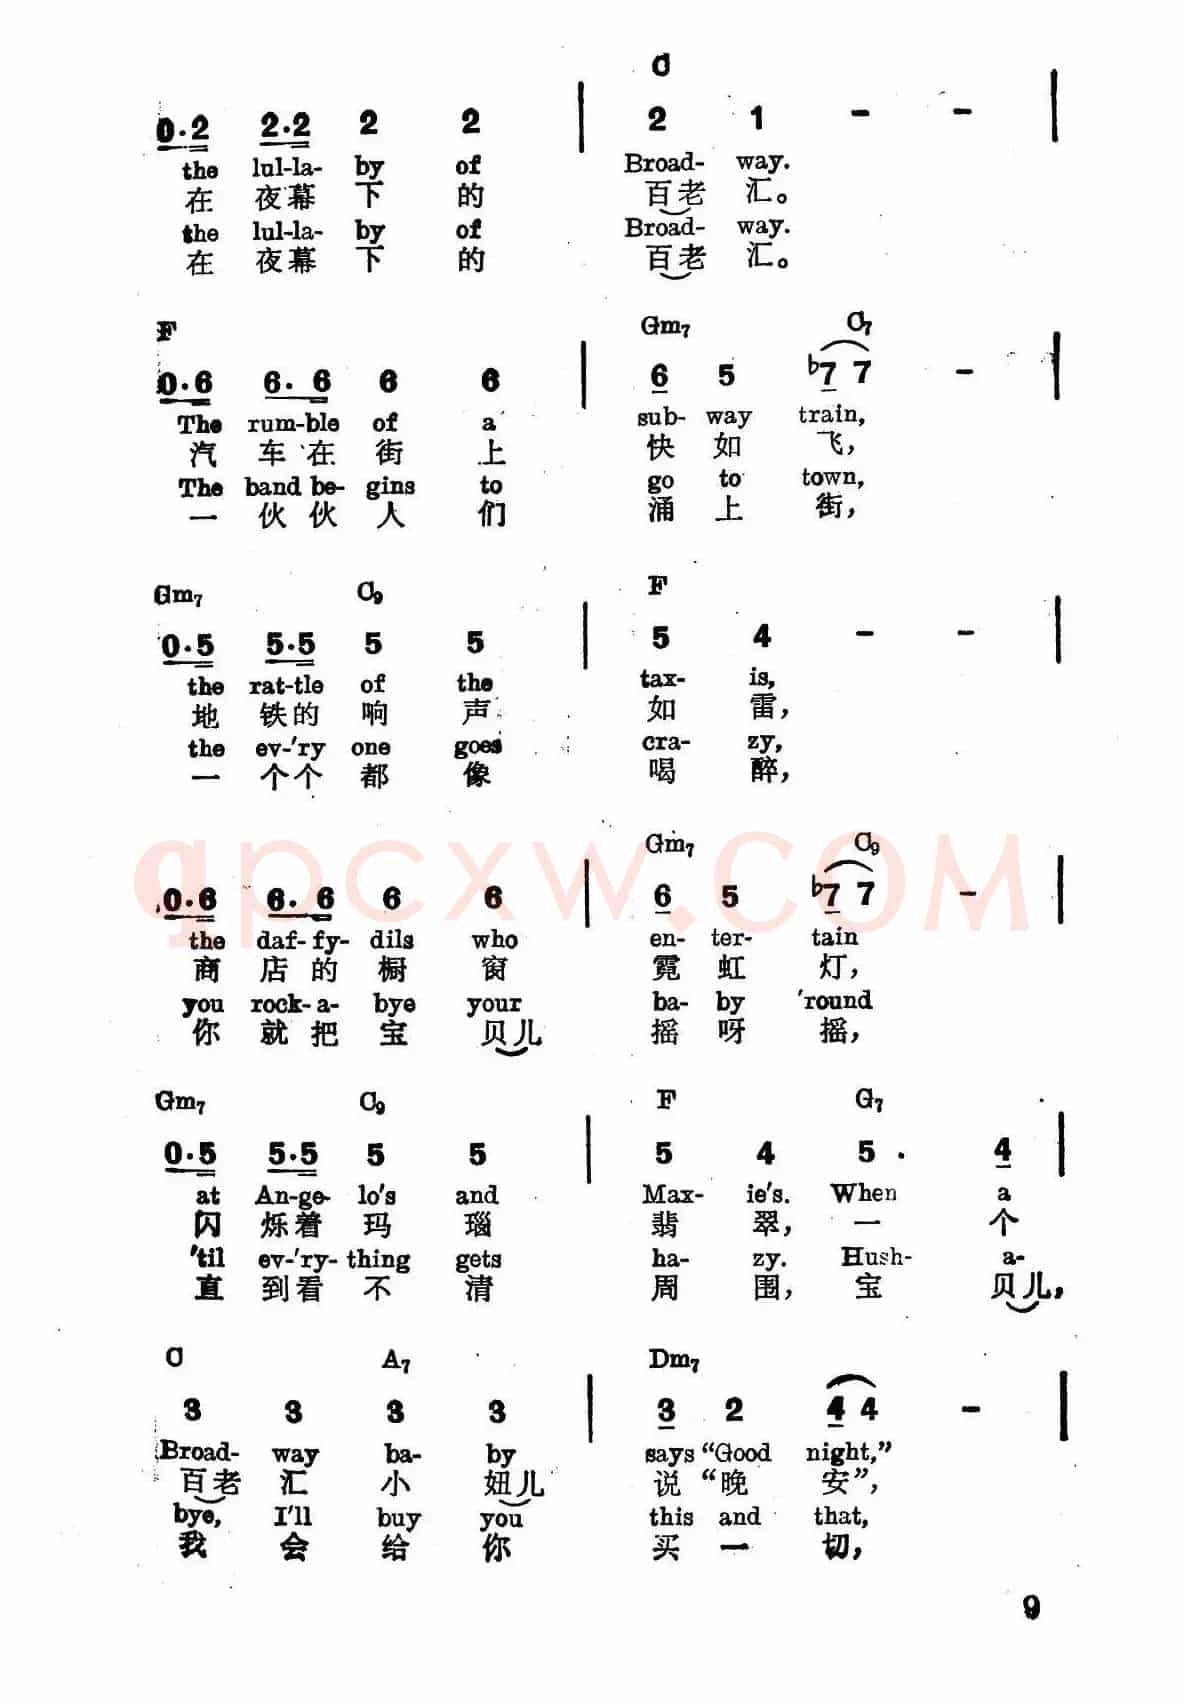 C
0·2 2·2 2 2 | 2 1 - - |
the lul-la- by of Broad- way.
在 夜幕 下 的 百老 汇。
the lul-la- by of Broad- way.
在 夜幕 下 的 百老 汇。
F Gm7 C7
0·6 6·6 6 6 | 6 5 b7 7 - |
The rum-ble of a sub- way train,
汽 车在 街 上 快 如 飞,
The band be- gins to go to town,
一 伙伙 人 们 涌 上 街,
Gm7 C9 F
0·5 5·5 5 5 | 5 4 - - |
the rat-tle of the tax- is,
地 铁的 响 声 如 雷,
the ev-'ry one goes cra- zy,
一 个个 都 像 喝 醉,
Gm7 C9
0·6 6·6 6 6 | 6 5 b7 7 - |
the daf-fy- dils who en- ter- tain
商 店的 橱 窗 霓 虹 灯,
you rock-a- bye your ba- by 'round
你 就把 宝 贝儿 摇 呀 摇,
Gm7 C9 F G7
0·5 5·5 5 5 | 5 4 5 · 4 |
at An-ge- lo's and Max- ie's. When a
闪 烁着 玛 瑙 翡 翠, 一 个
'til ev-'ry- thing gets ha- zy. Hush- a-
直 到看 不 清 周 围, 宝 贝儿,
C A7 Dm7
3 3 3 3 | 3 2 4 4 - |
Broad- way ba- by says “Good night,”
百老 汇 小 妞儿 说 “晚 安”,
bye, I'll buy you this and that,
我 会 给 你 买 一 切,
9
qpcxw.COM